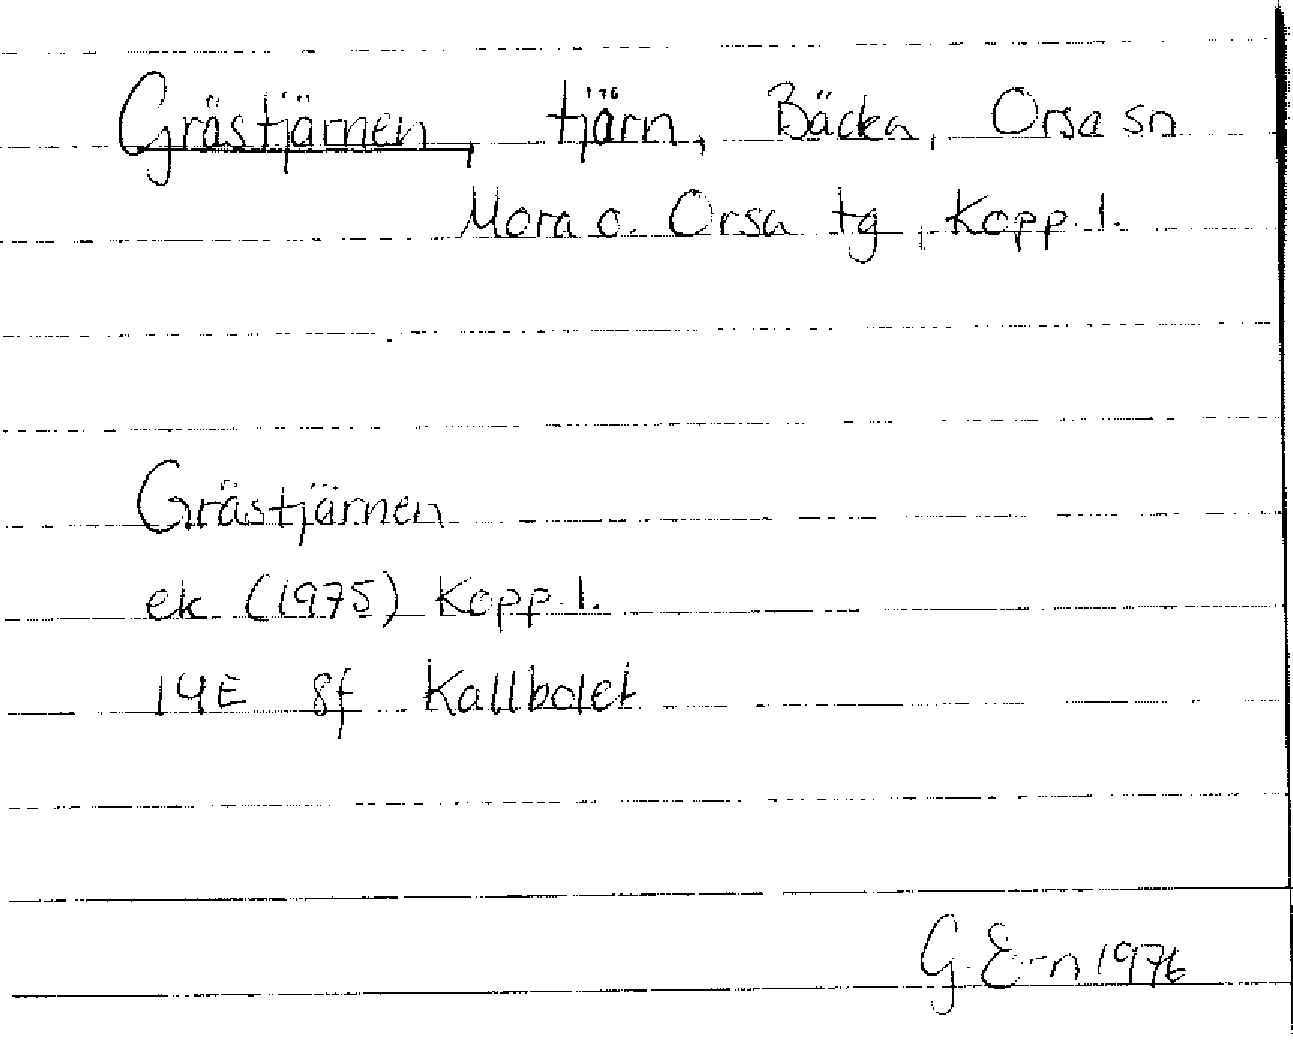 Grästjärnen, tjärn, Bäcka, Orsa sn
Mora o. Orsa tg, Kopp. l.
Grästjärnen
ek (1975) Kopp. l.
14E 8f Kallbolet
G. E-n 1976